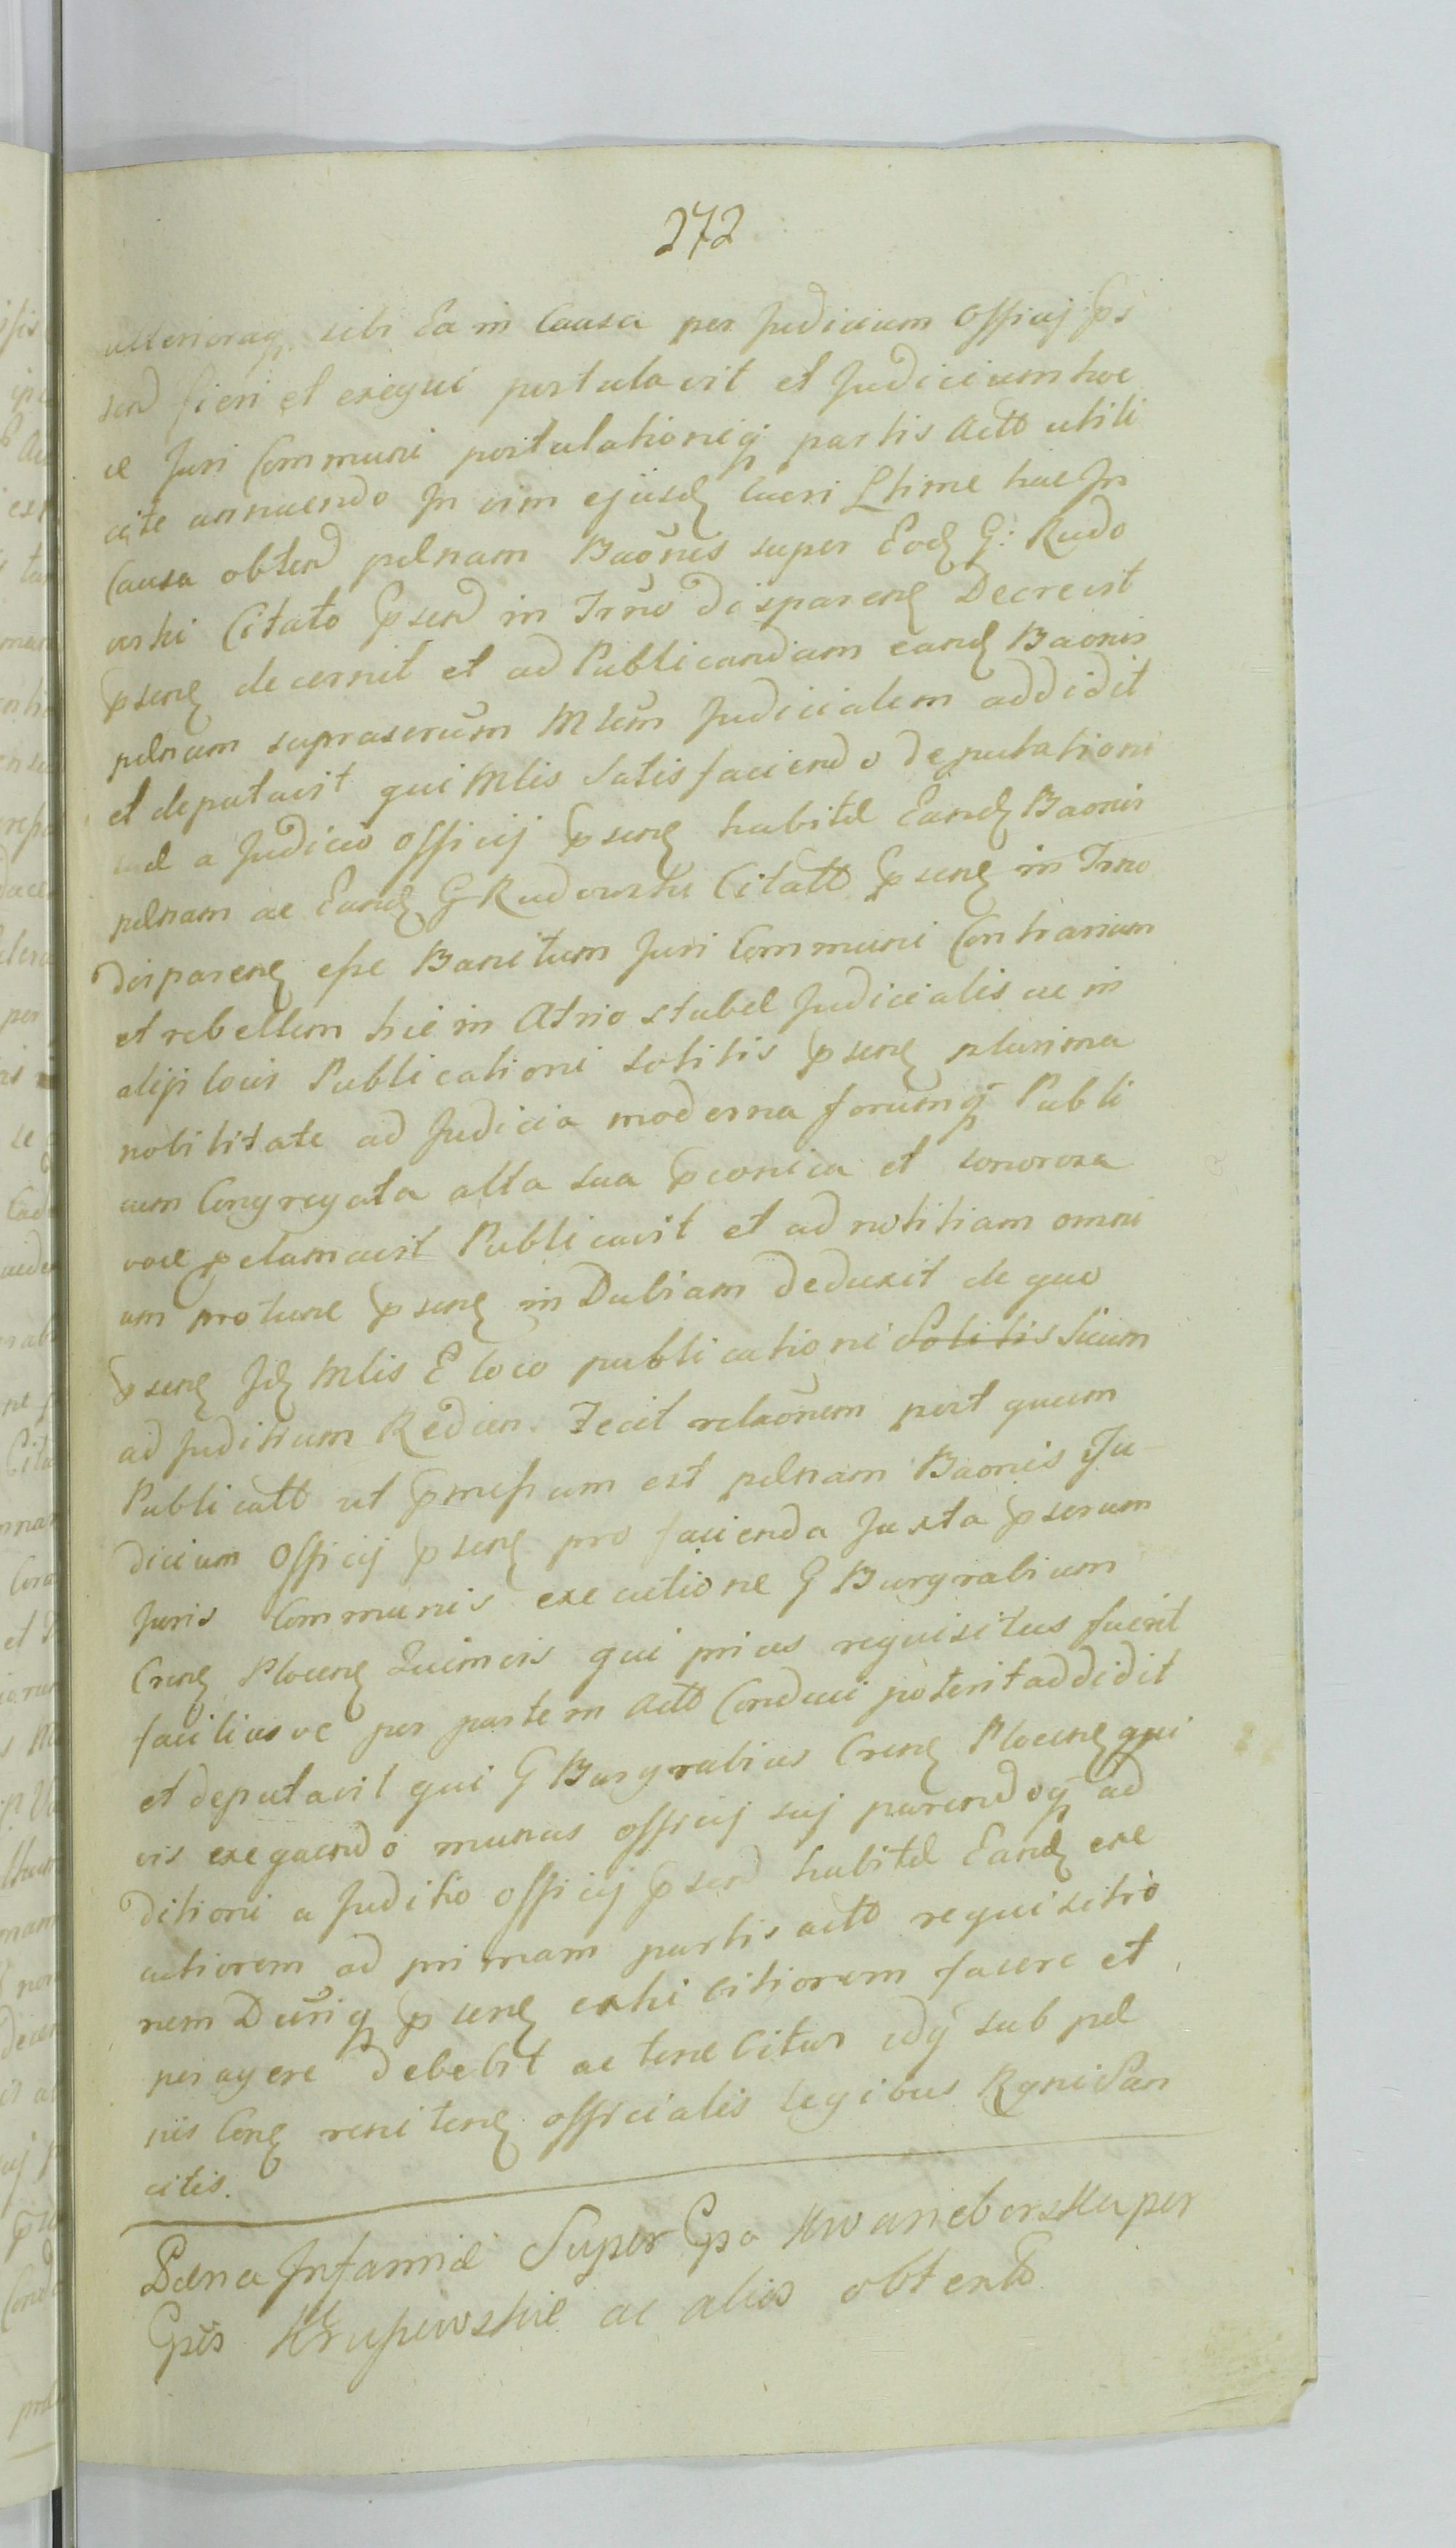 272
ulterioraq. sibi Ea in Causa per Judicium Officij ps
send fieri et exequi postulavit et Judicium hoc
ae Juri Communi postulationiq partis Acto utili
cite annuendo In vim ejusd lucri Ltime hac In
Causa obtend pelnam Baonis super Eod G: Rudo
wski Citato psend in Trno disparenq Decrevit
psenq decernit et ad Publicandam eand Baonis
pelnam suprascrum Mlem Judicialem addidit
et deputavit qui Mlis Satisfaciendo deputationi
a Judicio officij psenq habitæ Eand Baonis
pelnam ac Eand G Rudowski Citatto psenq in Trno
disparenq esse Banitum Juri Communi Contrarium
et rebellem hic in Atrio stubæ Judicialis ac in
alijs locis Publicationi solitis psenq plurima
nobilitate ad Judicia moderna forumq Publi
cum Congregata alta sua pconica et sonorosa
voce pclamavit Publicavit et ad notitiam omni
um protunc psenq in Dubiam deduxit de quo
psenq Jd Mlis E loco publicationi Solitis Suum
ad Juditium Redien. Fecit relaonem post quam
Publicatto ut pmissum est pelnam Baonis Ju-
dicium Officij psenq pro facienda Juxta pserum
Juris Communis executione G Burgrabium
Crenq Plocenq Quimvis qui prius requisitus fuerit
faciliusve per partem Acto Conduci poterit addidit
et deputavit qui G Burgrabius Crenq Plocenq qui
vis exequendo munus officij suj parendoq ad
ditioni a Juditio officij psend habitæ Eand exe
cutionem ad primam partis acto requisitio
nem Dunq psenq exhibitionem facere et
peragere debebit ac tenebitur idq sub pæ
nis Conq renitenq officialis legibus Rgni San
citis.
Pæna Infamiæ Super Gpo Kwanieborska per
Gpos Krupowskie ac alios obtento